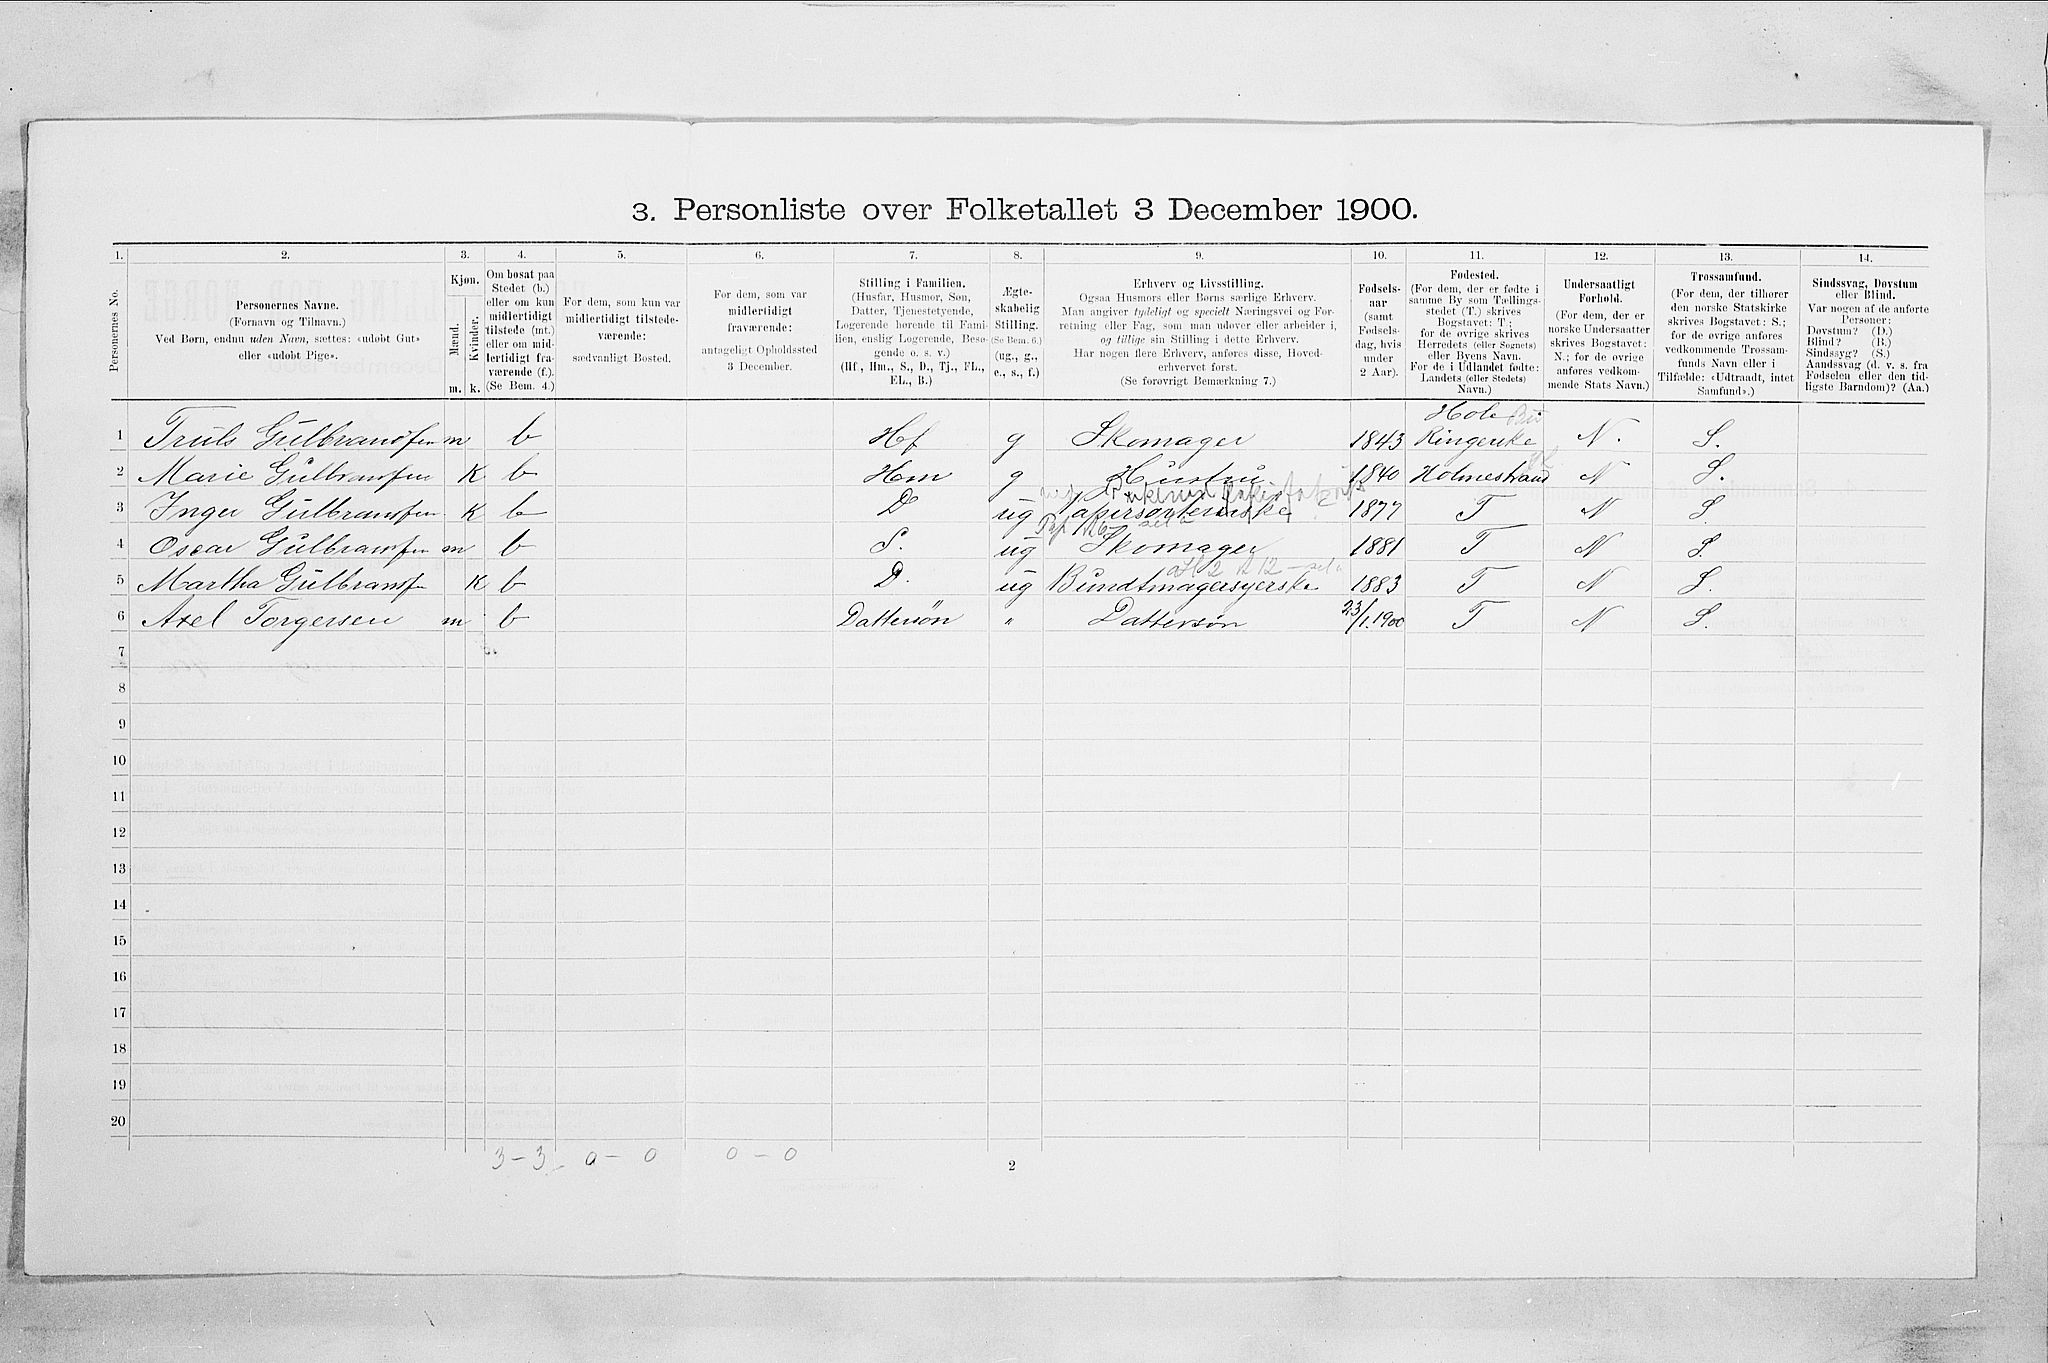 3. Personliste over Folketallet 3 December 1900.
1. 2. 3. 4. 5. 6. 7. 8. 9. 10. 11. 12. 13. 14.
Personernes No.
Personernes Navne.
(Fornavn og Tilnavn.)
Ved Børn, endnu uden Navn, sættes: «udobt Gut»
eller «udobt Pige».
Kjøn.
Mænd.
Kvinder.
m. k.
Om bosat paa
Stedet (b.)
eller om kun
midlertidigt
tilstede (mt.)
eller om mid-
lertidigt fra-
værende (f.).
(Se Bem. 4.)
For dem, som kun var
midlertidigt tilstede-
værende:
sædvanligt Bosted.
For dem, som var
midlertidigt
fraværende:
antageligt Opholdssted
3 December.
Stilling i Familien.
(Husfar, Husmor, Søn,
Datter, Tjenestetyende,
Logerende hørende til Fami-
lien, enslig Logerende, Besø-
gende o. s. v.)
(Hf., Hm., S., D., Tj., FL.,
EL., B.)
Ægte-
skabelig
Stilling.
(Se Bem. 6.)
(ug., g.,
e., s., f.)
Erhverv og Livsstilling.
Ogsaa Husmors eller Børns særlige Erhverv.
Man angiver tydeligt og specielt Næringsvei og For-
retning eller Fag, som man udøver eller arbeider i,
og tillige sin Stilling i dette Erhverv.
Har nogen flere Erhverv, anføres disse, Hoved-
erhvervet først.
(Se forøvrigt Bemærkning 7.)
Fødsels-
aar
(samt
Fødsels-
dag, hvis
under
2 Aar).
Fødested.
(For dem, der er fødte i
samme By som Tællings-
stedet (T.) skrives
Bogstavet: T.;
for de øvrige skrives
Herredets (eller Sognets)
eller Byens Navn.
For de i Udlandet fødte:
Landets (eller Stedets)
Navn.)
Undersaatligt
Forhold.
(For dem, der er
norske Undersaatter
skrives Bogstavet:
N.; for de øvrige
anføres vedkom-
mende Stats Navn.)
Trossamfund.
(For dem, der tilhører
den norske Statskirke
skrives Bogstavet: S.;
for de øvrige anføres
vedkommende Trossam-
funds Navn eller i
Tilfælde: «Udtraadt, intet
Samfund».)
Sindssvag, Døvstum
eller Blind.
Var nogen af de anførte
Personer:
Døvstum? (D.)
Blind? (B.)
Sindssyg? (S.)
Aandssvag (d. v. s. fra
Fødselen eller den tid-
ligste Barndom)? (Aa.)
Hole
1 Truls Gulbransen m b Hf g Skomager 1843 Ringerike N. S.
2 Marie Gulbransen K b Hm g Hustru 1840 Holmestrand N S.
3 Inger Gulbransen K b D ug Papirsortererske 1877 T N S.
4 Oscar Gulbransen m b S. ug Skomager 1881 T N S.
5 Martha Gulbransen K b D. ug Bundtmagersyerske 1883 T N S.
6 Axel Torgersen m b Dattersön " Dattersön 23/1.1900 T N S.
7
8
9
10
11
12
13
14
15
16
17
18
19
20
3 – 3 0 – 0 0 – 0
2